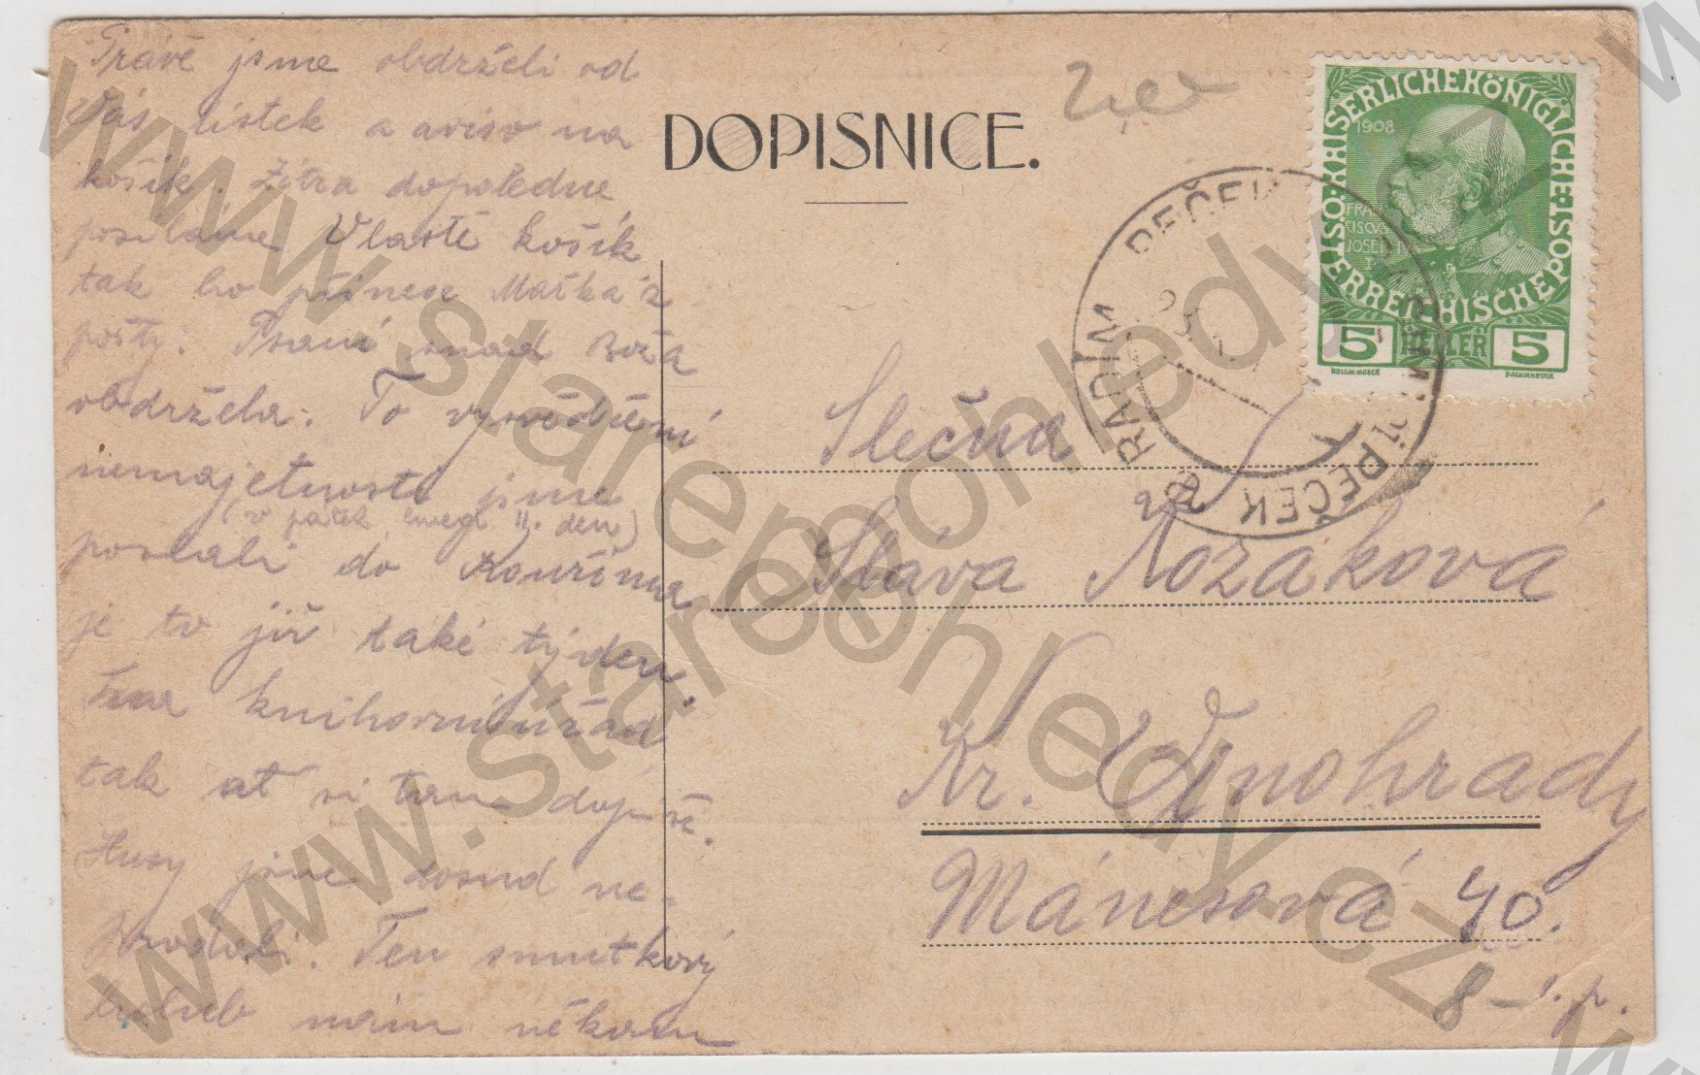 Právě jsme obdrželi od
Vás lístek a aviso na
košík. Zítra dopoledne
posíláme Vlastě košík
tak ho přinese Mařka z
pošty. Psaní snad Boža
obdržela. To vysvědčení
nemajetnosti jsme
(v pátek 11. den)
poslali do Kouřima
je to již také týden.
knihovní úřad
tak ať si tam dojde.
Husy jsme dosud ne-
prodali. Ten smutkový
mám někam
DOPISNICE.
KAISERLICHE KÖNIGLICHE ÖSTERREICHISCHE POST
1908
FRANCISCVS JOSEPH I
5 HELLER 5
RADIM PEČEK
RADIM PEČEK
Slečna
Sláva Kozáková
Kr. Vinohrady
Mánesová 40.
8 - I. p.
www.starepohledy.cz
www.starepohledy.cz